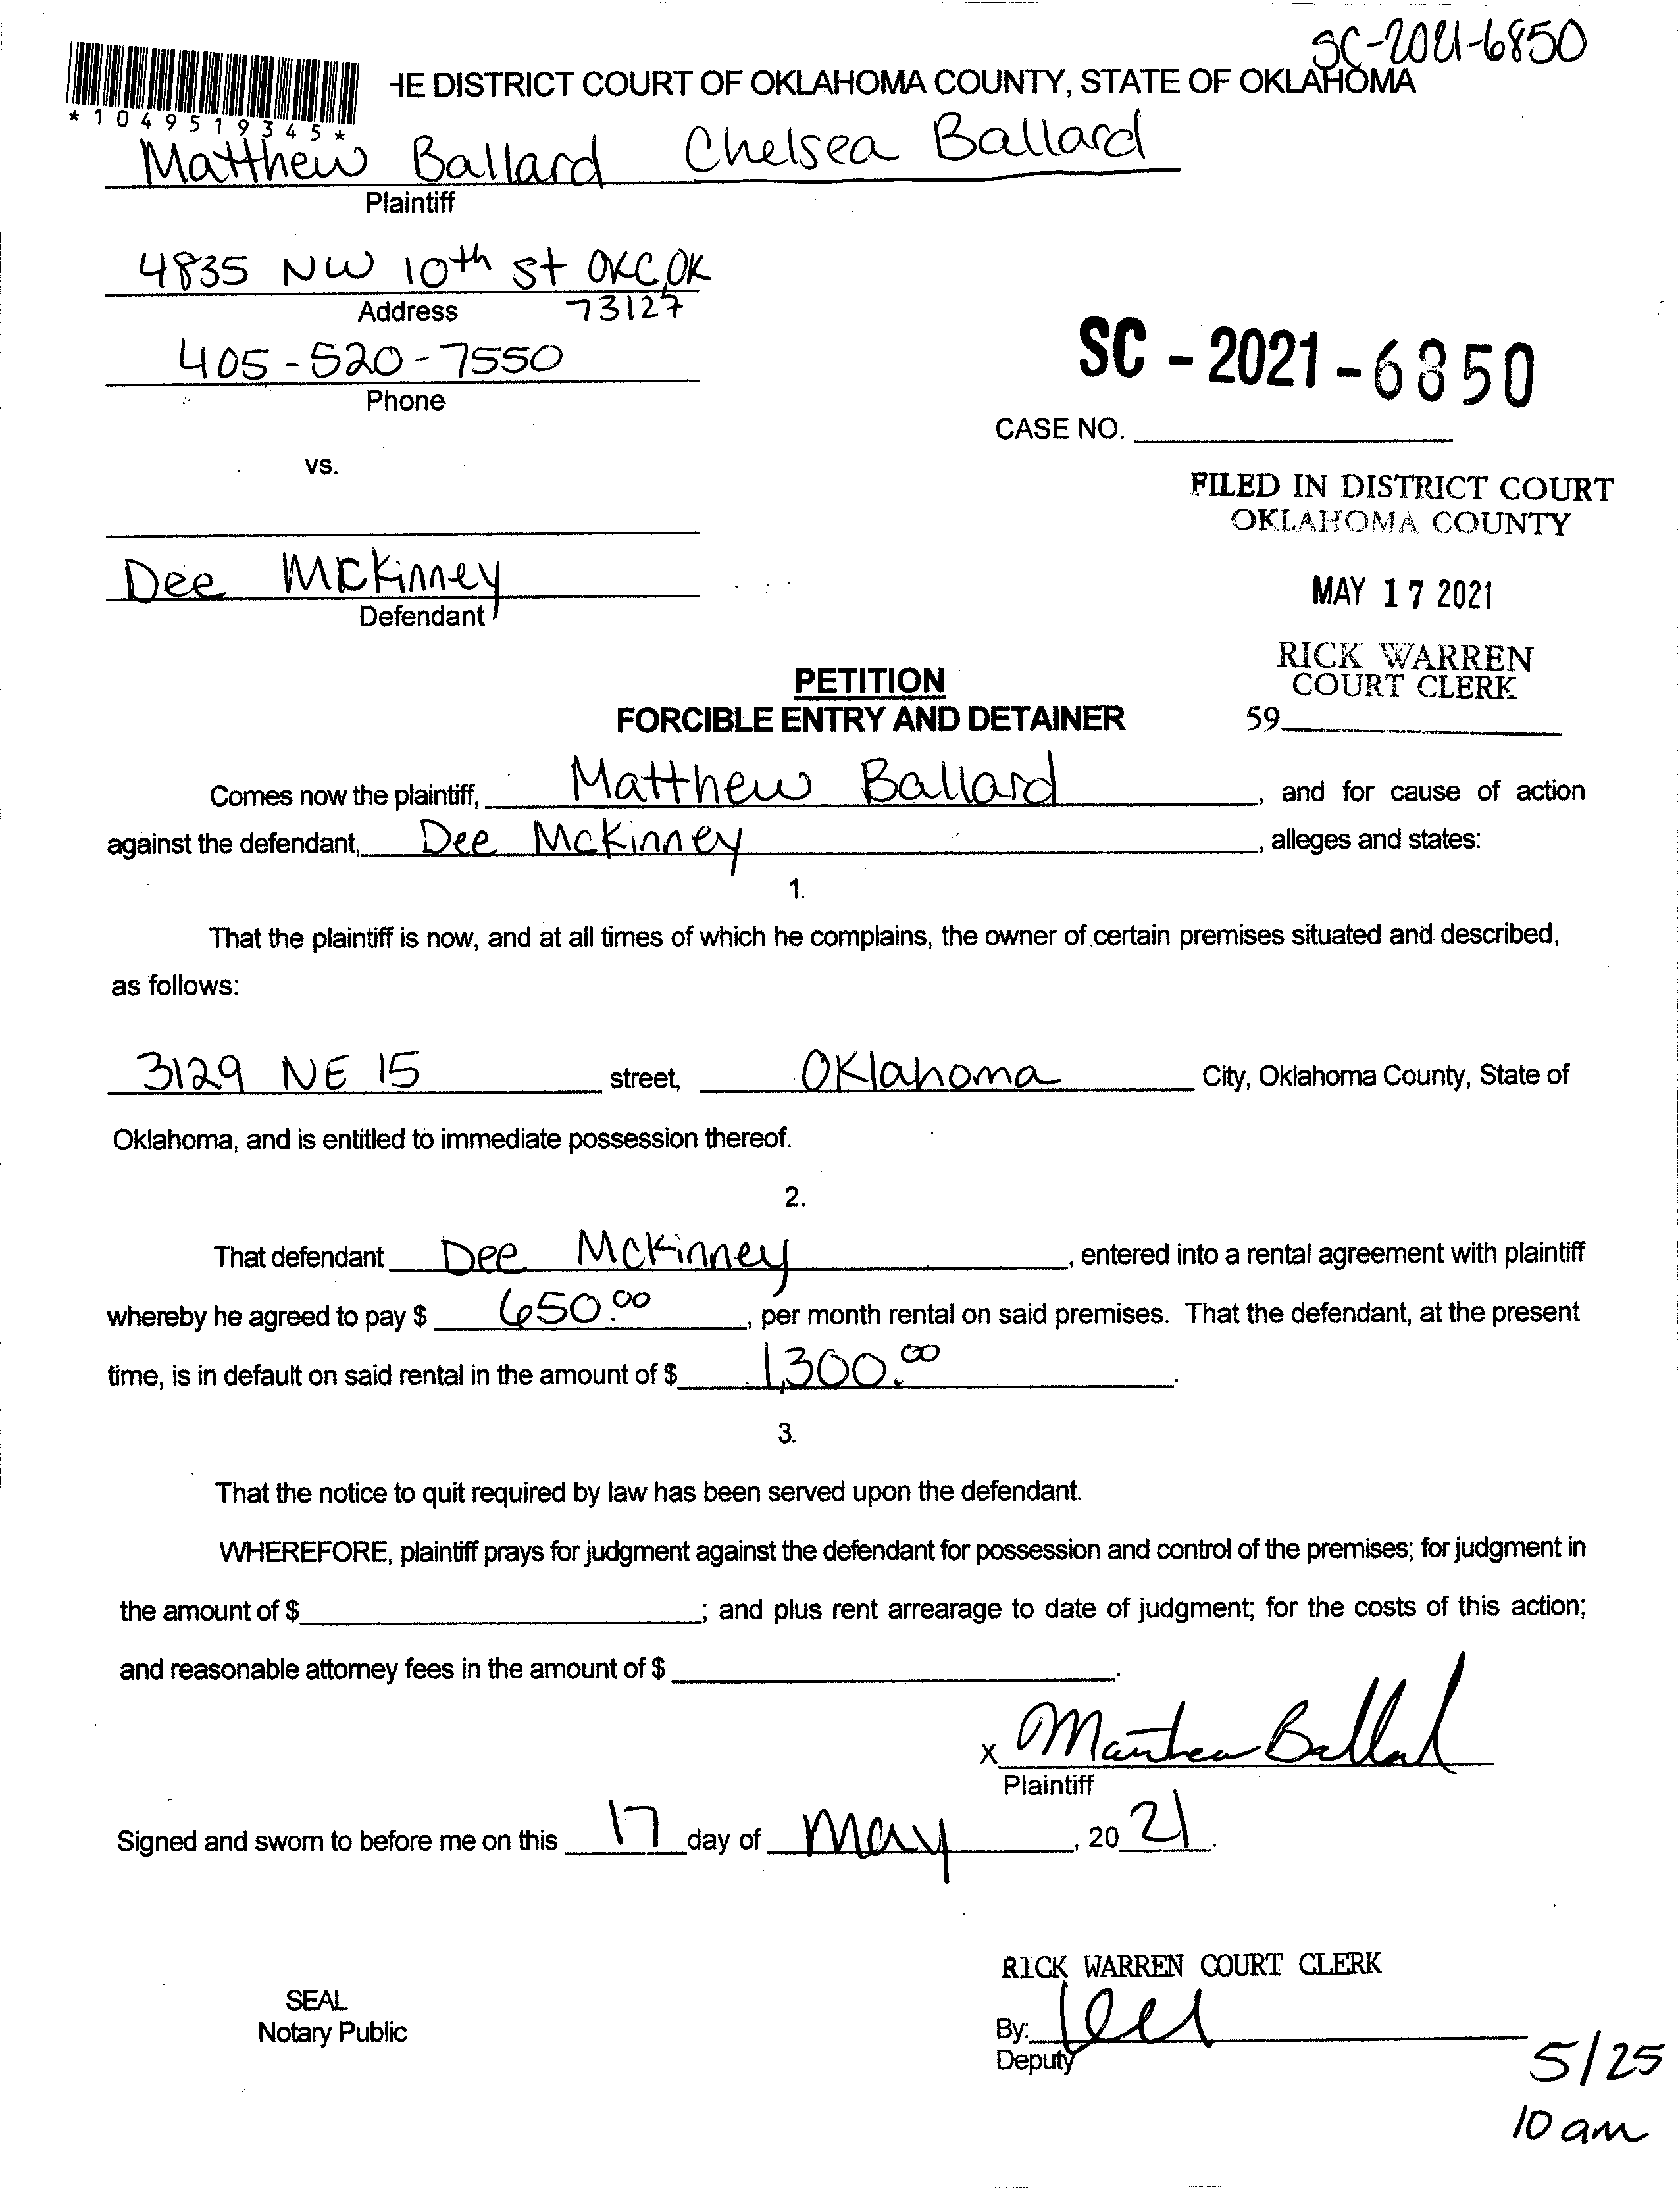 SC-2021-6850
HE DISTRICT COURT OF OKLAHOMA COUNTY, STATE OF OKLAHOMA
*1049519345*
Matthew Ballard Chelsea Ballard
Plaintiff
4835 NW 10th St OKC, OK
Address 73127
405-520-7550
Phone
SC - 2021 - 6850
CASE NO.
vs.
FILED IN DISTRICT COURT
OKLAHOMA COUNTY
Dee McKinney
Defendant
MAY 17 2021
RICK WARREN
COURT CLERK
59
PETITION
FORCIBLE ENTRY AND DETAINER
Comes now the plaintiff, Matthew Ballard, and for cause of action
against the defendant, Dee McKinney, alleges and states:
1.
That the plaintiff is now, and at all times of which he complains, the owner of certain premises situated and described,
as follows:
3129 NE 15 street, Oklahoma City, Oklahoma County, State of
Oklahoma, and is entitled to immediate possession thereof.
2.
That defendant Dee McKinney, entered into a rental agreement with plaintiff
whereby he agreed to pay $ 650.00, per month rental on said premises. That the defendant, at the present
time, is in default on said rental in the amount of $ 1,300.00.
3.
That the notice to quit required by law has been served upon the defendant.
WHEREFORE, plaintiff prays for judgment against the defendant for possession and control of the premises; for judgment in
the amount of $; and plus rent arrearage to date of judgment; for the costs of this action;
and reasonable attorney fees in the amount of $.
x Matthew Ballard
Plaintiff
Signed and sworn to before me on this 17 day of May, 20 21.
RICK WARREN COURT CLERK
SEAL
Notary Public
By:
Deputy
5/25
10 am